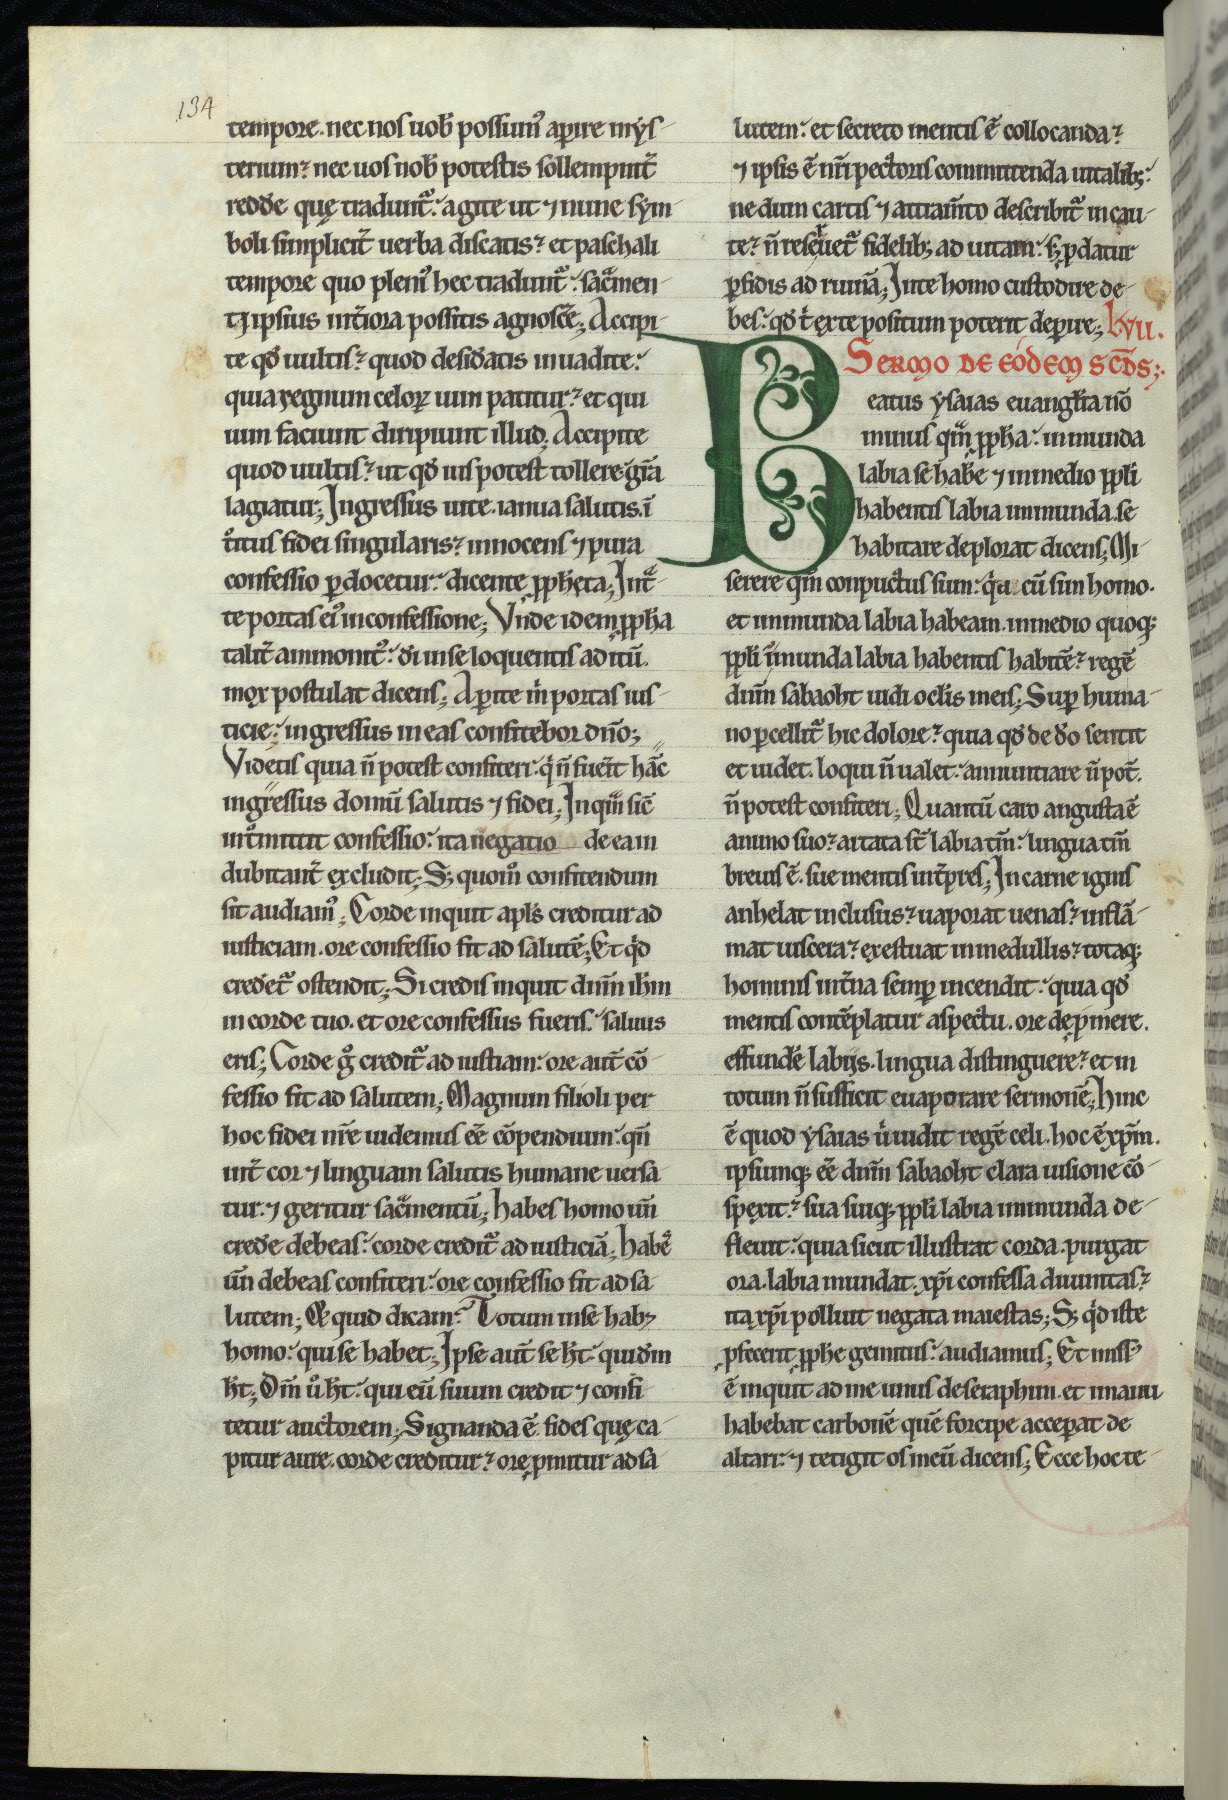 134
tempore. nec nos uob̄ possum᷒ aꝑire mẏs-
terium; nec uos nob̄ potestis sollempnit̄
redd̄e quę tradunt᷑. agite ut ⁊ nunc sẏm-
boli simplicit̄ uerba discatis; et paschali
tempore quo pleni᷒ hec tradunt᷑. sac̄men-
tj ipsius int̄iora possitis agnosc̄e; Accipi-
te qd̄ uultis; quod desid̄atis inuadite.
quia regnum celoꝝ uim patitur; et qui
uim faciunt diripiunt illud; Accipite
quod uultis; ut qd̄ uis potest tollere. gr̄a
lagiatur; Ingressus uite. ianua salutis. ī
t°itus fidei singularis; innocens ⁊ pura
confessio ꝑdocetur. dicente ꝓph̄eta; Int᷑-
te portas ei᷒ in confessione; Vnde idem ꝓph̄a
talit̄ ammonit᷒. d̄i in se loquentis aditū.
mox postulat dicens; Aꝑite m̄ portas ius-
ticie. ingressus in eas confitebor dn̄o;
Videtis quia n̄ potest confiteri. q̄ n̄ fueīt hāc
ingressus domū salutis ⁊ fidei; In qm̄ sic̄
int°mittit confessio. ita negatio de ea in
dubitant̄ excludit; Sꝫ quom̊ confitendum
sit audiam᷒; Corde inquit apl̄s creditur ad
iusticiam. ore confessio fit ad salutē; Et qd̄
cred̄et᷑ ostendit; Si credis inquit dn̄m ih̄m
in corde tuo. et ore confessus fueris. saluus
eris; Corde g̊ credit᷑ ad iustiam. ore aut̄ cō-
fessio fit ad salutem; Magnum filioli per
hoc fidei nr̄e uidemus eē cōpendium. qn̄
int̄ cor ⁊ linguam salutis humane uersa
tur. ⁊ geritur sac̄mentū; habes homo un̄
cred̄e debeas. corde credit᷑ ad iusticiā; habē
un̄ debeas confiteri. ore confessio fit ad sa-
lutem; Et quid dicam; Totum in se habꝫ
homo. qui se habet; Ipse aut̄ se h̄t. qui dm̄
h̄t; Dm̄ u° h̄t. qui eū suum credit ⁊ confi
tetur auctorem; Signanda ē fides quę ca-
pitur aure. corde creditur; ore ꝓmitur ad sa-
lutem. et secreto mentis ē collocanda;
⁊ ipsis ē nr̄i pectoris committenda uitalibꝫ.
ne dum cartis ⁊ attram̄to describit᷑ incau-
te; n̄ reseruet᷑ fidelibꝫ ad uitam. sꝫ ꝓdatur
ꝑfidis ad ruinā; In te homo custodire de-
bes. qd̄ t̄ ex te positum poterit deꝑire; lxvii.
Sermo de eodem scd̄s;
Beatus ẏsaias euangl̄ia nō
minus qm̄ ꝓph̄a. inmunda
labia se hab̄e ⁊ in medio ppl̄i
habentis labia inmunda. se
habitare deplorat dicens; Mi-
serere qm̄ conpuctus sum. q̄a cū sim homo.
et inmunda labia habeam. in medio quoqꝫ
ppl̄i inmunda labia habentis habitē; regē
dn̄m sabaoht uidi ocl̄is meis; Suꝑ huma-
no ꝑcellit᷑ hic dolore; quia qd̄ de d̄o sentit
et uidet. loqui n̄ ualet. annuntiare n̄ pot̄.
n̄ potest confiteri; Quantū caro angusta ē
animo suo; artata st̄ labia tm̄. lingua tm̄
breuis ē. sue mentis int̄pres; In carne ignis
anhelat inclusus; uaporat uenas; inflā-
mat uiscera; exestuat in medullis; totaqꝫ
hominis int̄na semꝑ incendit. quia qd̄
mentis contēplatur aspectu. ore deꝓmere.
effund̄e labijs. lingua distinguere; et in
totum n̄ sufficit euaporare sermonē; hinc
ē quod ẏsaias ū uidit regē celi. hoc ē xp̄m.
ipsumqꝫ eē dn̄m sabaoht clara uisione cō-
spexit; sua suiqꝫ ppl̄i labia inmunda de-
fleuit. quia sicut illustrat corda. purgat
ora. labia mundat. xp̄i confessa diuinitas;
ita xp̄i polluit negata maiestas; Sꝫ qd̄ iste
ꝓfecerit ꝓph̄e gemitus. audiamus; Et miss᷒
ē inquit ad me unus de seraphin. et in manu
habebat carbonē quē forcipe acceꝑat de
altari. ⁊ tetigit os meū dicens; Ecce hoc te-